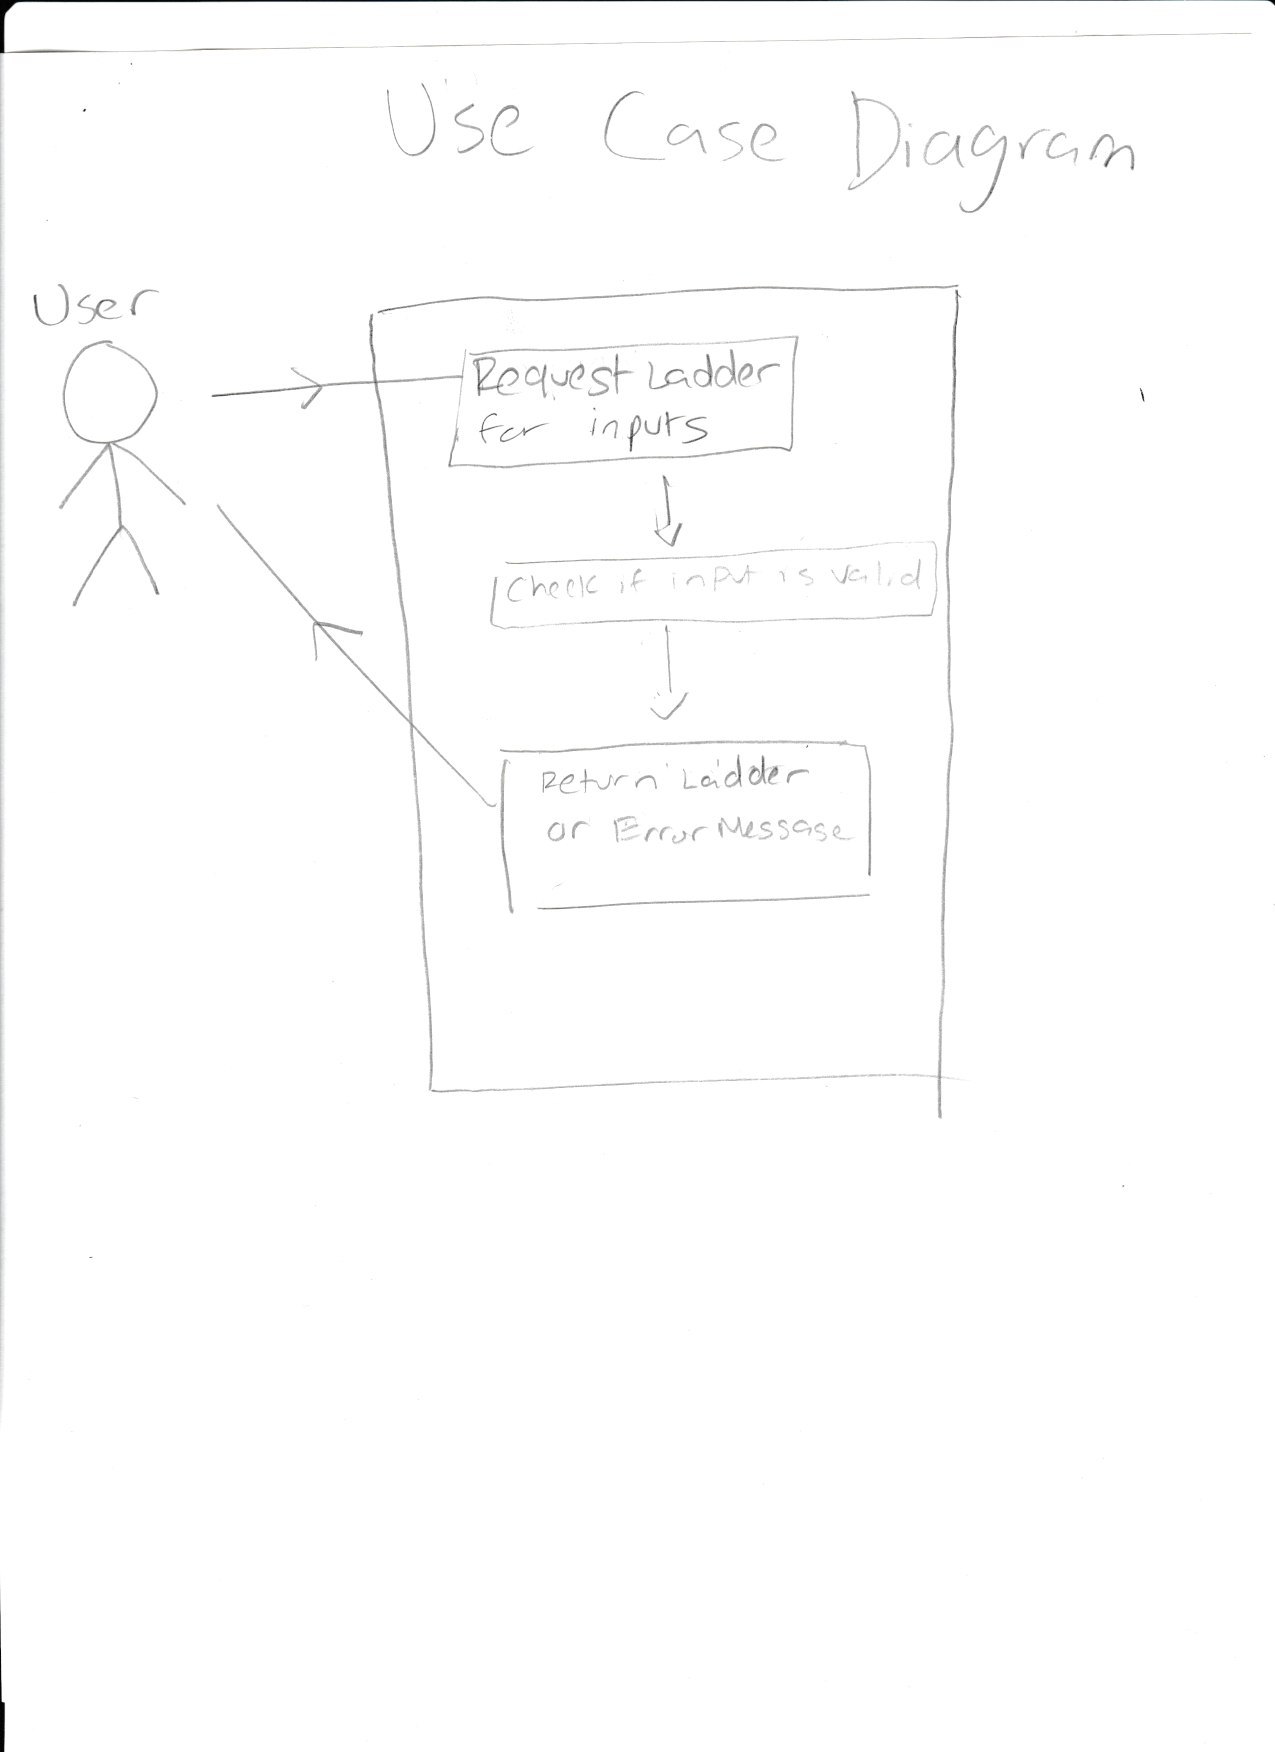 Use Case Diagram
User
Request Ladder
for inputs
Check if input is valid
Return Ladder
or Error Message